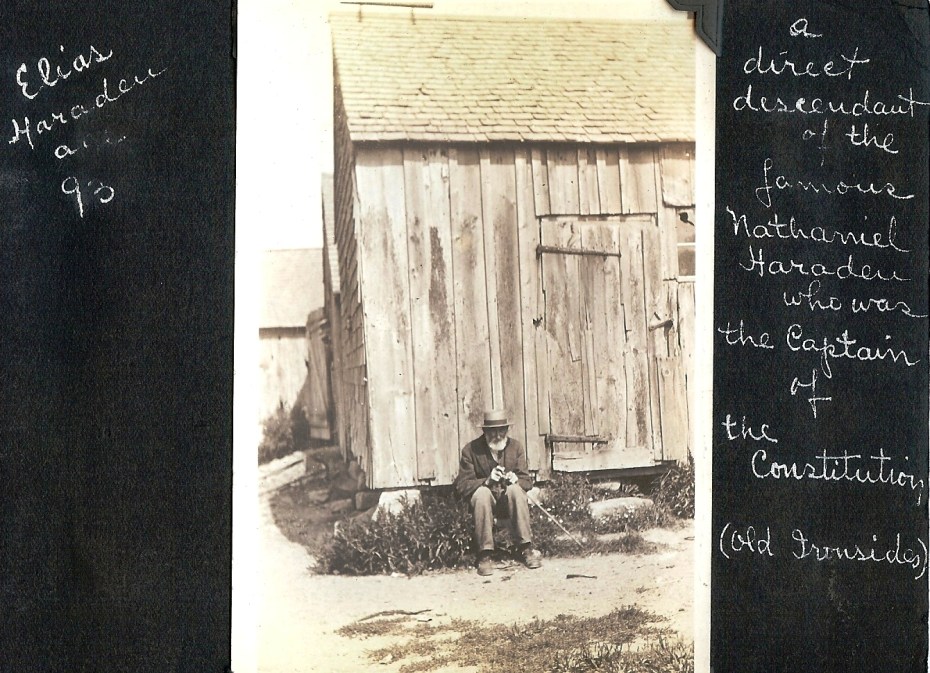 Elias
Haraden
93
a
direct
descendant
of the
famous
Nathaniel
Haraden
who was
the Captain
of
the
Constitution
(Old Ironsides)